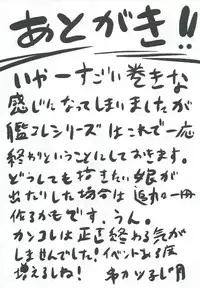 あとがき!!
いやーすごい巻きな
感じになってしまいましたが
艦これシリーズはこれで一応
終わりということにしておきます。
どうしても描きたい娘が
出たりした場合は追加で一冊
作るかもです。うん。
カンコレは正直終わる気が
しませんでした!イベントある度
増えるしね!